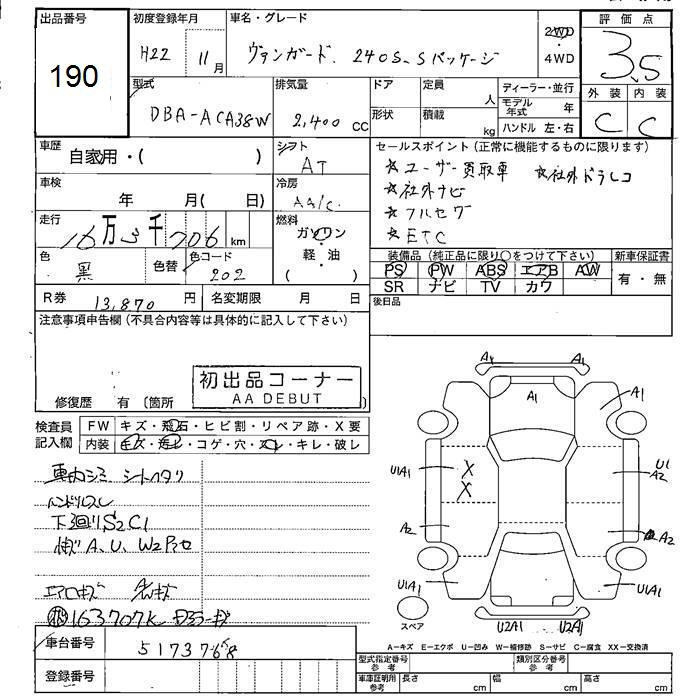 出品番号 初度登録年月 車名・グレード 2WD 評価点
190 H22 11月 ヴァンガード 240S Sパッケージ ・4WD 3.5
型式 排気量 ドア 定員 人 ディーラー・並行 外装 内装
DBA-ACA38W 2,400 CC 形状 積載 kg モデル年式 年 C C
ハンドル 左・右
車歴 自家用・( ) シフト AT セールスポイント(正常に機能するものに限ります)
車検 年 月( 日) 冷房 AA/C
☆ユーザー買取車 ☆社外ドラレコ
☆社外ナビ
☆フルセグ
☆ETC
走行 16万3千706km 燃料 ガソリン
軽・油
( )
色 黒 色替 色コード 202
装備品(純正品に限り○をつけて下さい) 新車保証書
PS PW ABS エアB AW 有・無
SR ナビ TV カワ
R券 13,870円 名変期限 月 日 後日品
注意事項申告欄(不具合内容等は具体的に記入して下さい)
初出品コーナー
AA DEBUT
修復歴 有 〔箇所
検査員 FW キズ・飛石・ヒビ割・リペア跡・X要
記入欄 内装 キズ・汚レ・コゲ・穴・スレ・キレ・破レ
シートヘタリ
ハンドルスレ
下廻りS2C1
A、U、W2
エアロキズ
163707K
A1 A1
A1 A1
U1A1 X U1
X A2
A2 A2
U1A1 U1A1
スペア U2A1 U2A1
A-キズ E-エクボ U-凹み W-補修跡 S-サビ C-腐食 XX-交換済
車台番号 5173768
型式指定番号 参考 類別区分番号 参考
登録番号 車庫証明用 参考 長さ cm 幅 cm 高さ cm